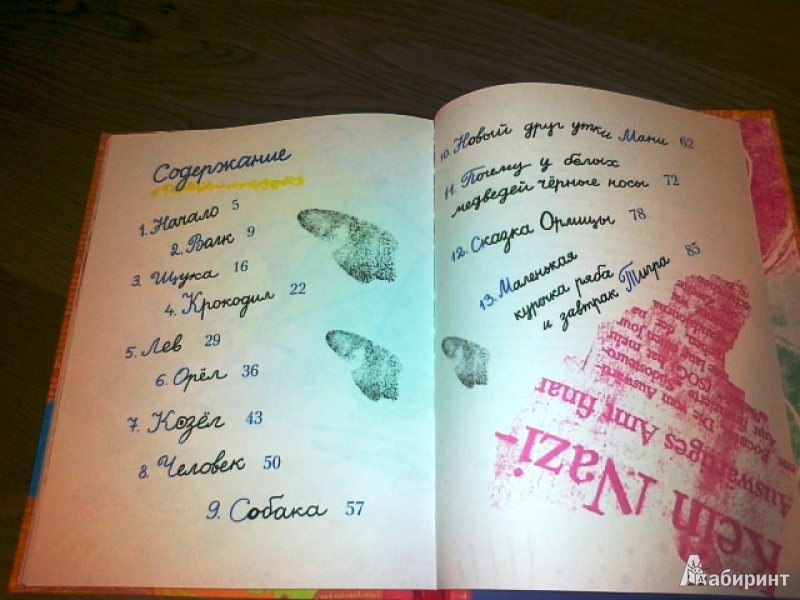 Содержание
1. Начало 5
2. Волк 9
3. Щука 16
4. Крокодил 22
5. Лев 29
6. Орёл 36
7. Козёл 43
8. Человек 50
9. Собака 57
10. Новый друг утки Мани 62
11. Почему у белых
медведей чёрные носы 72
12. Сказка Ормицы 78
13. Маленькая
курочка ряба
и завтрак Тигра 85
Kein Nazi-
Auswärtiges Amt
Лабиринт